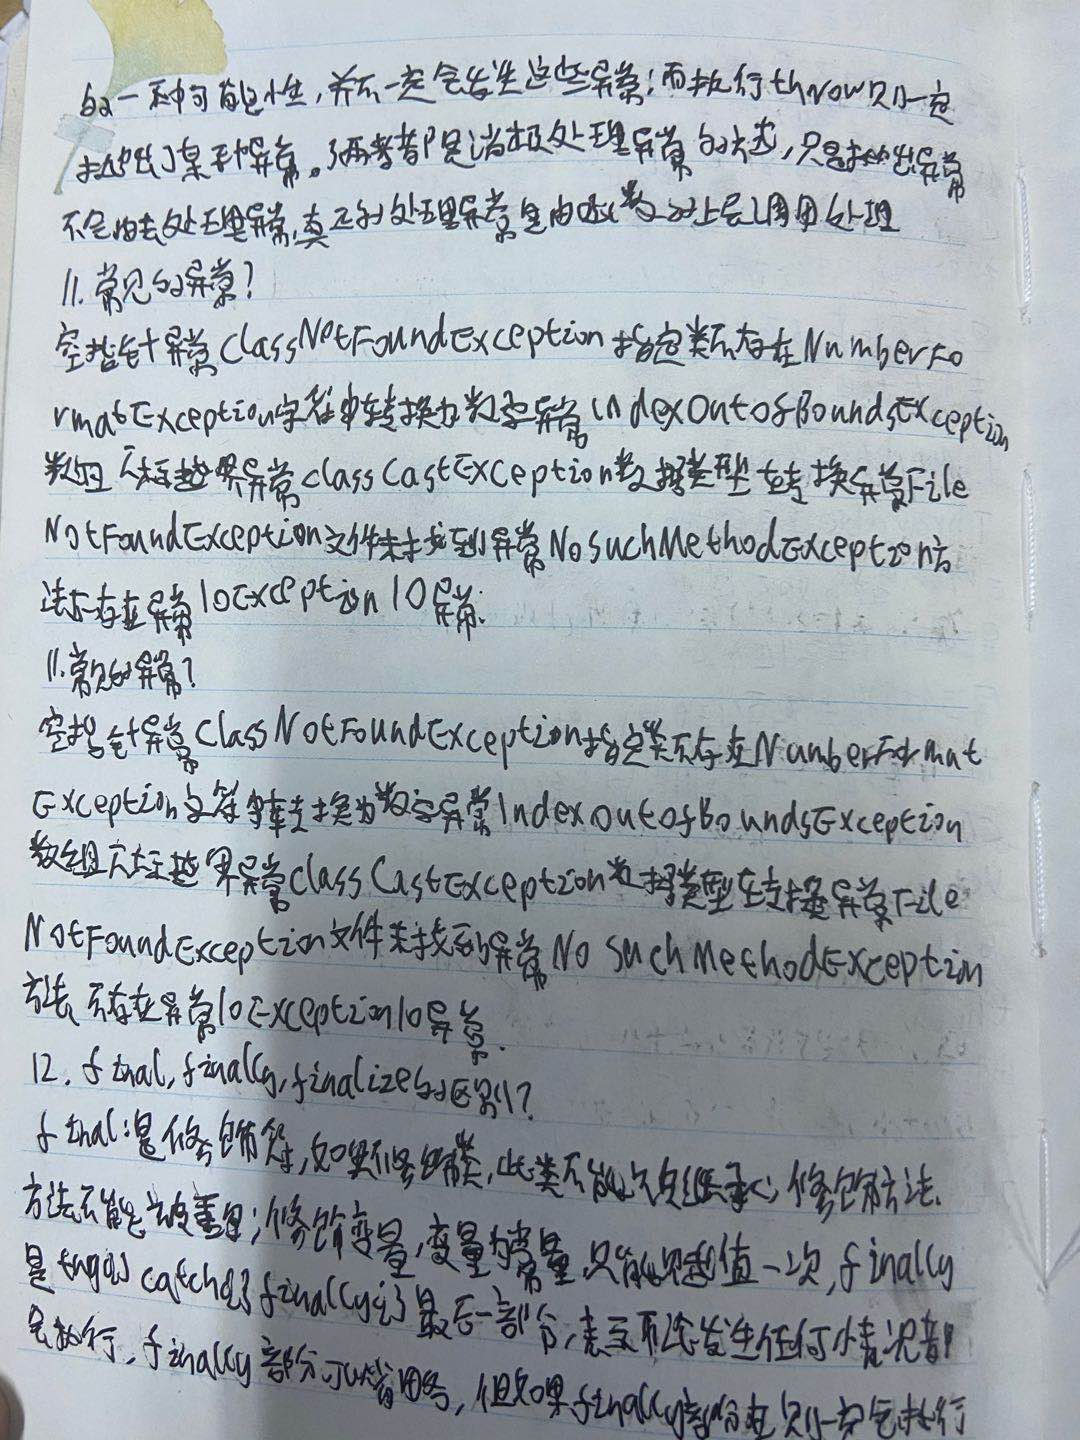 的一种可能性，并不一定会发生这些异常；而执行throw则一定
抛出了某种异常。两者都是消极处理异常的方式，只是抛出异常
不会由去处理异常，真正的处理异常是由函数的上层调用处理
11.常见的异常？
空指针异常ClassNotFoundException指定类不存在NumberFo
rmatException字符串转换为数字异常IndexOutOfBoundsException
数组下标越界异常classCastException数据类型转换异常File
NotFoundException文件未找到异常NosuchMethodException方
法不存在异常IoException IO异常.
11.常见的异常？
空指针异常ClassNotFoundException指定类不存在NumberFormat
Exception字符串转换为数字异常IndexoutofBoundsException
数组下标越界异常class CastException数据类型转换异常File
NotFoundException文件未找到异常No suchMethodException
方法不存在异常IoExceptionIo异常.
12. final,finally,finalize的区别？
final:是修饰符,如果修饰类,此类不能被继承;修饰方法.
方法不能被重写;修饰变量,变量为常量,只能赋值一次,finally
是try{} catch{}finally{}最后一部分,表示不论发生任何情况都
会执行,finally部分可以省略,但如果finally部分在则一定会执行